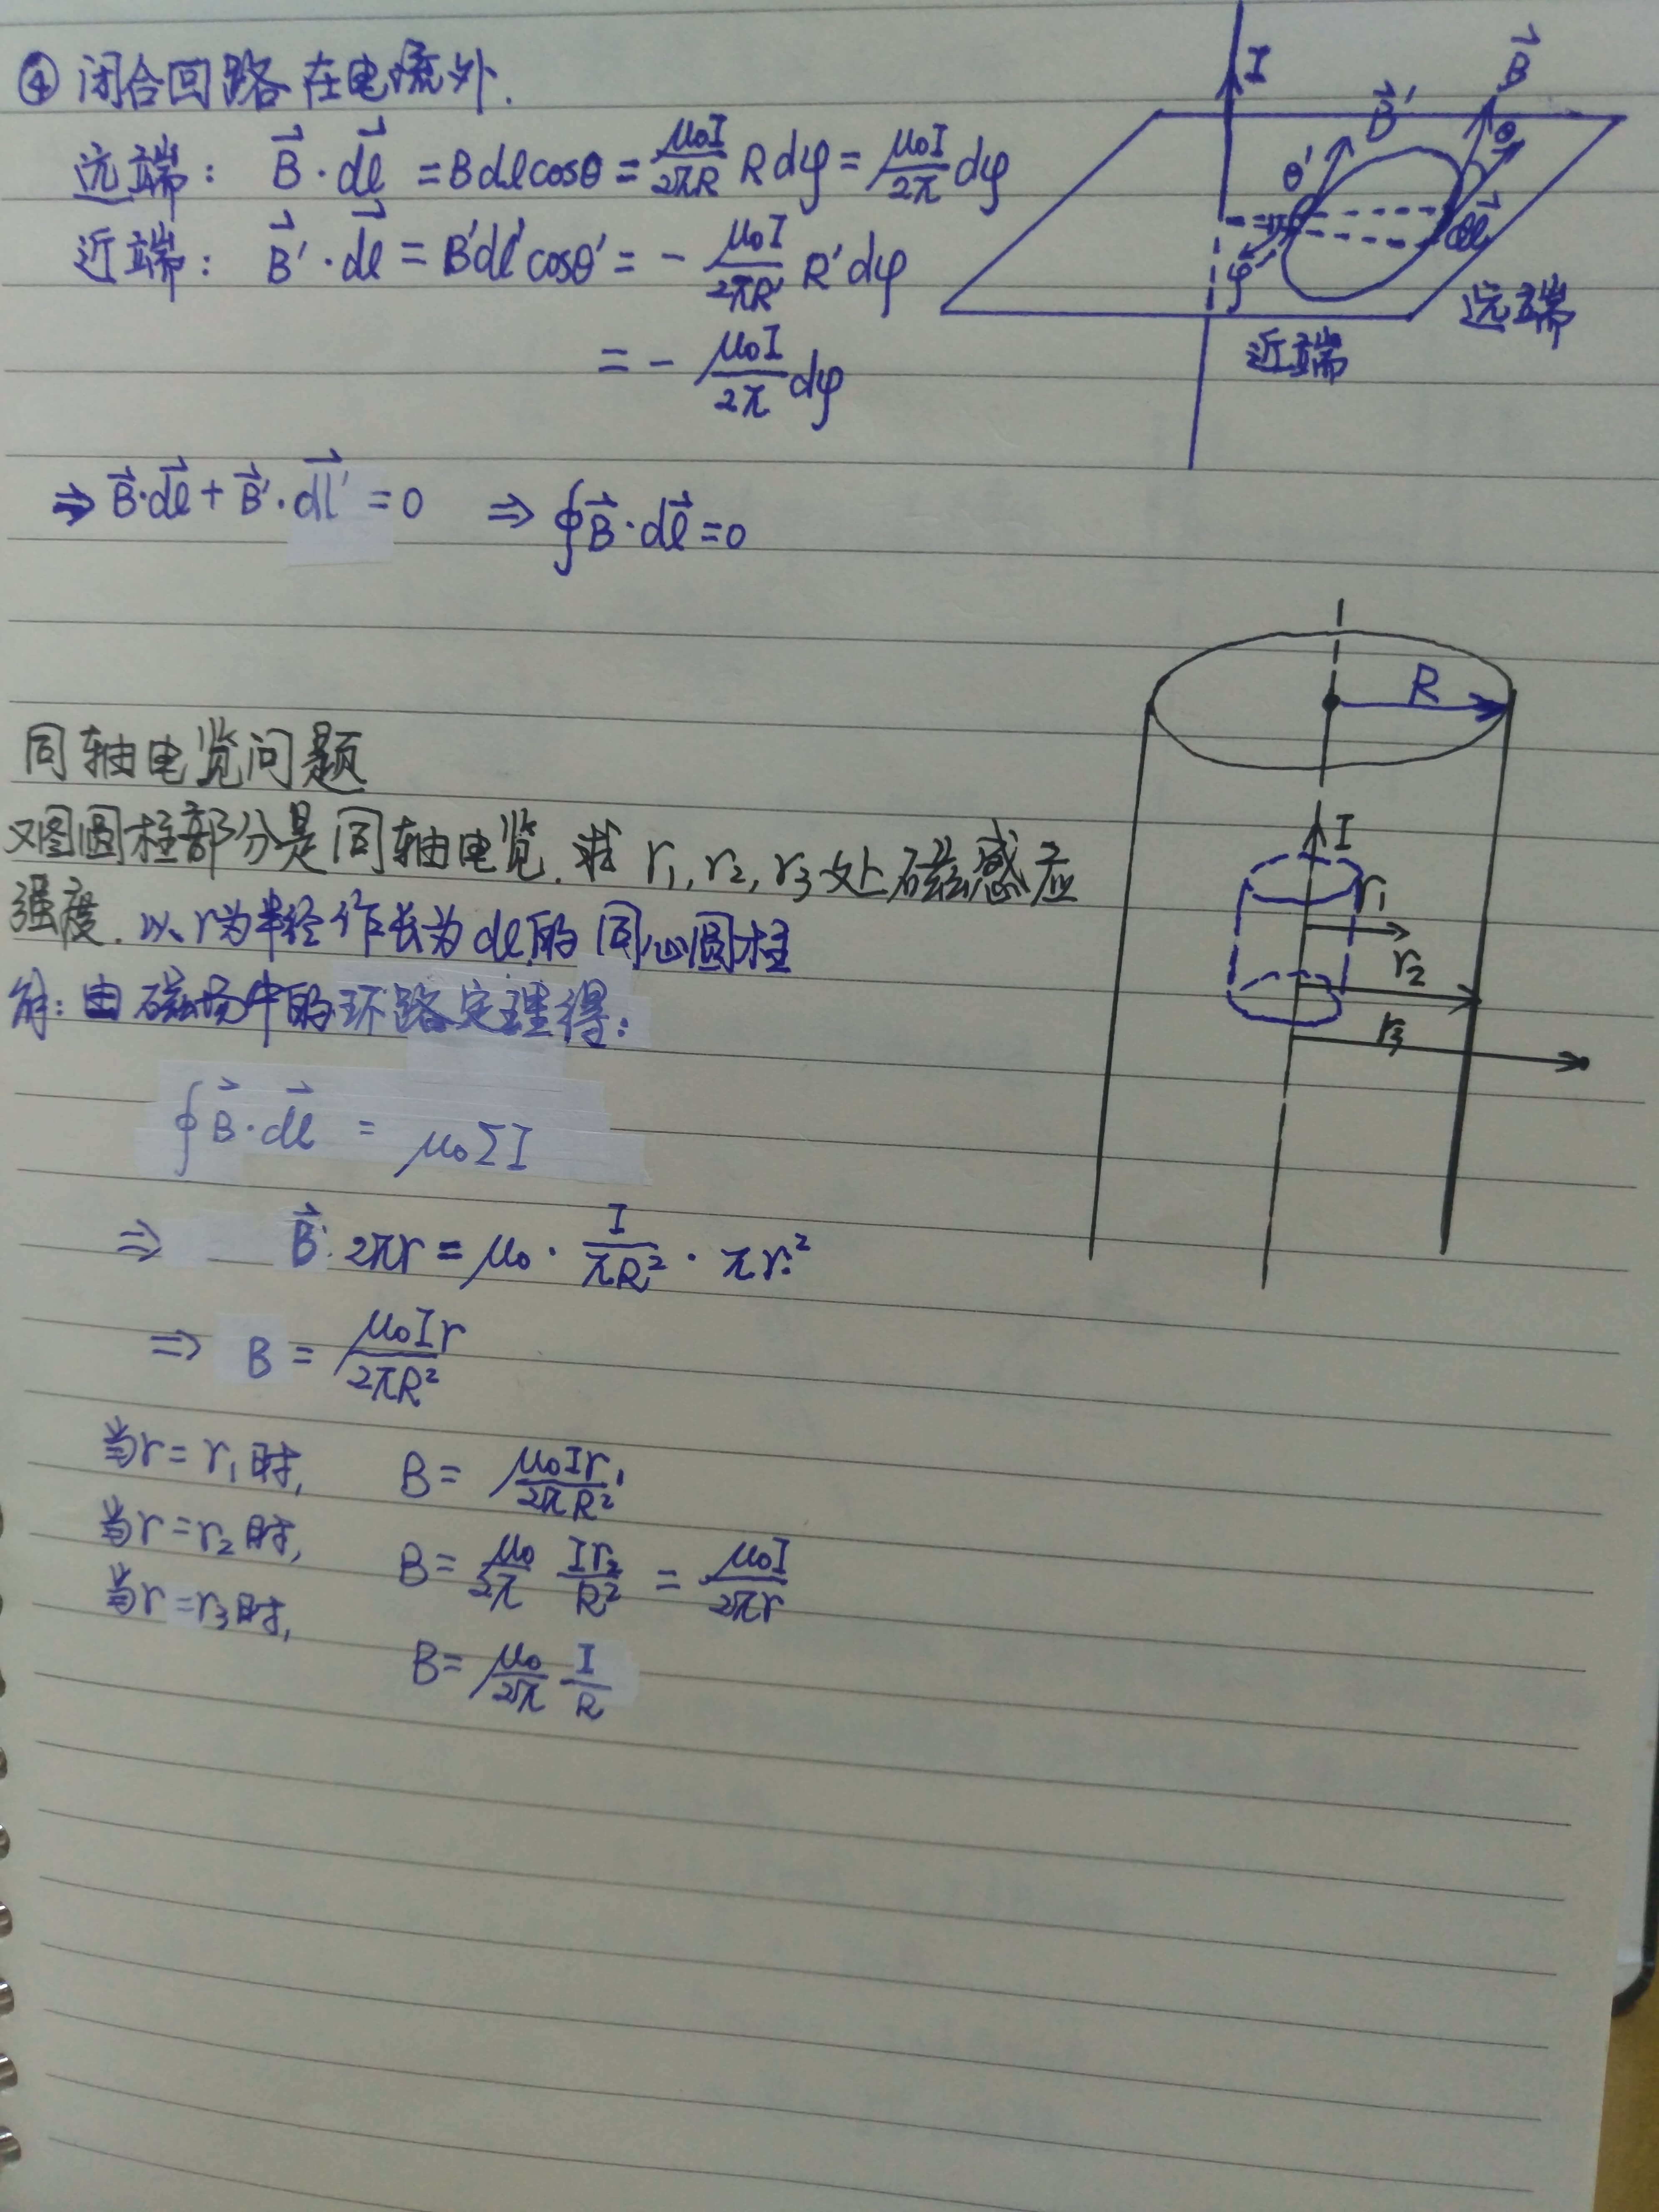 ④ 闭合回路在电流外.
远端: B⃗·dl⃗ = Bdlcosθ = μ₀I/2πR Rdφ = μ₀I/2π dφ
近端: B⃗'·dl⃗ = B'dl'cosθ' = - μ₀I/2πR' R'dφ
= - μ₀I/2π dφ
⇒ B⃗·dl⃗ + B⃗'·dl⃗' = 0 ⇒ ∮B⃗·dl⃗ = 0
I
B⃗'
B⃗
θ'
θ
dl⃗
φ'
远端
近端
同轴电览问题
图圆柱部分是同轴电览. 求 r₁, r₂, r₃处磁感应
强度. 以r为半径作长为dl的同心圆柱
解: 由磁场中的环路定理得:
∮B⃗·dl⃗ = μ₀ΣI
⇒ B⃗·2πr = μ₀· I/πR² · πr²
⇒ B = μ₀Ir/2πR²
当r=r₁时, B = μ₀Ir₁/2πR²
当r=r₂时, B = μ₀/2π Ir₂/R² = μ₀I/2πr
当r=r₃时, B = μ₀/2π I/R
R
I
r₁
r₂
r₃